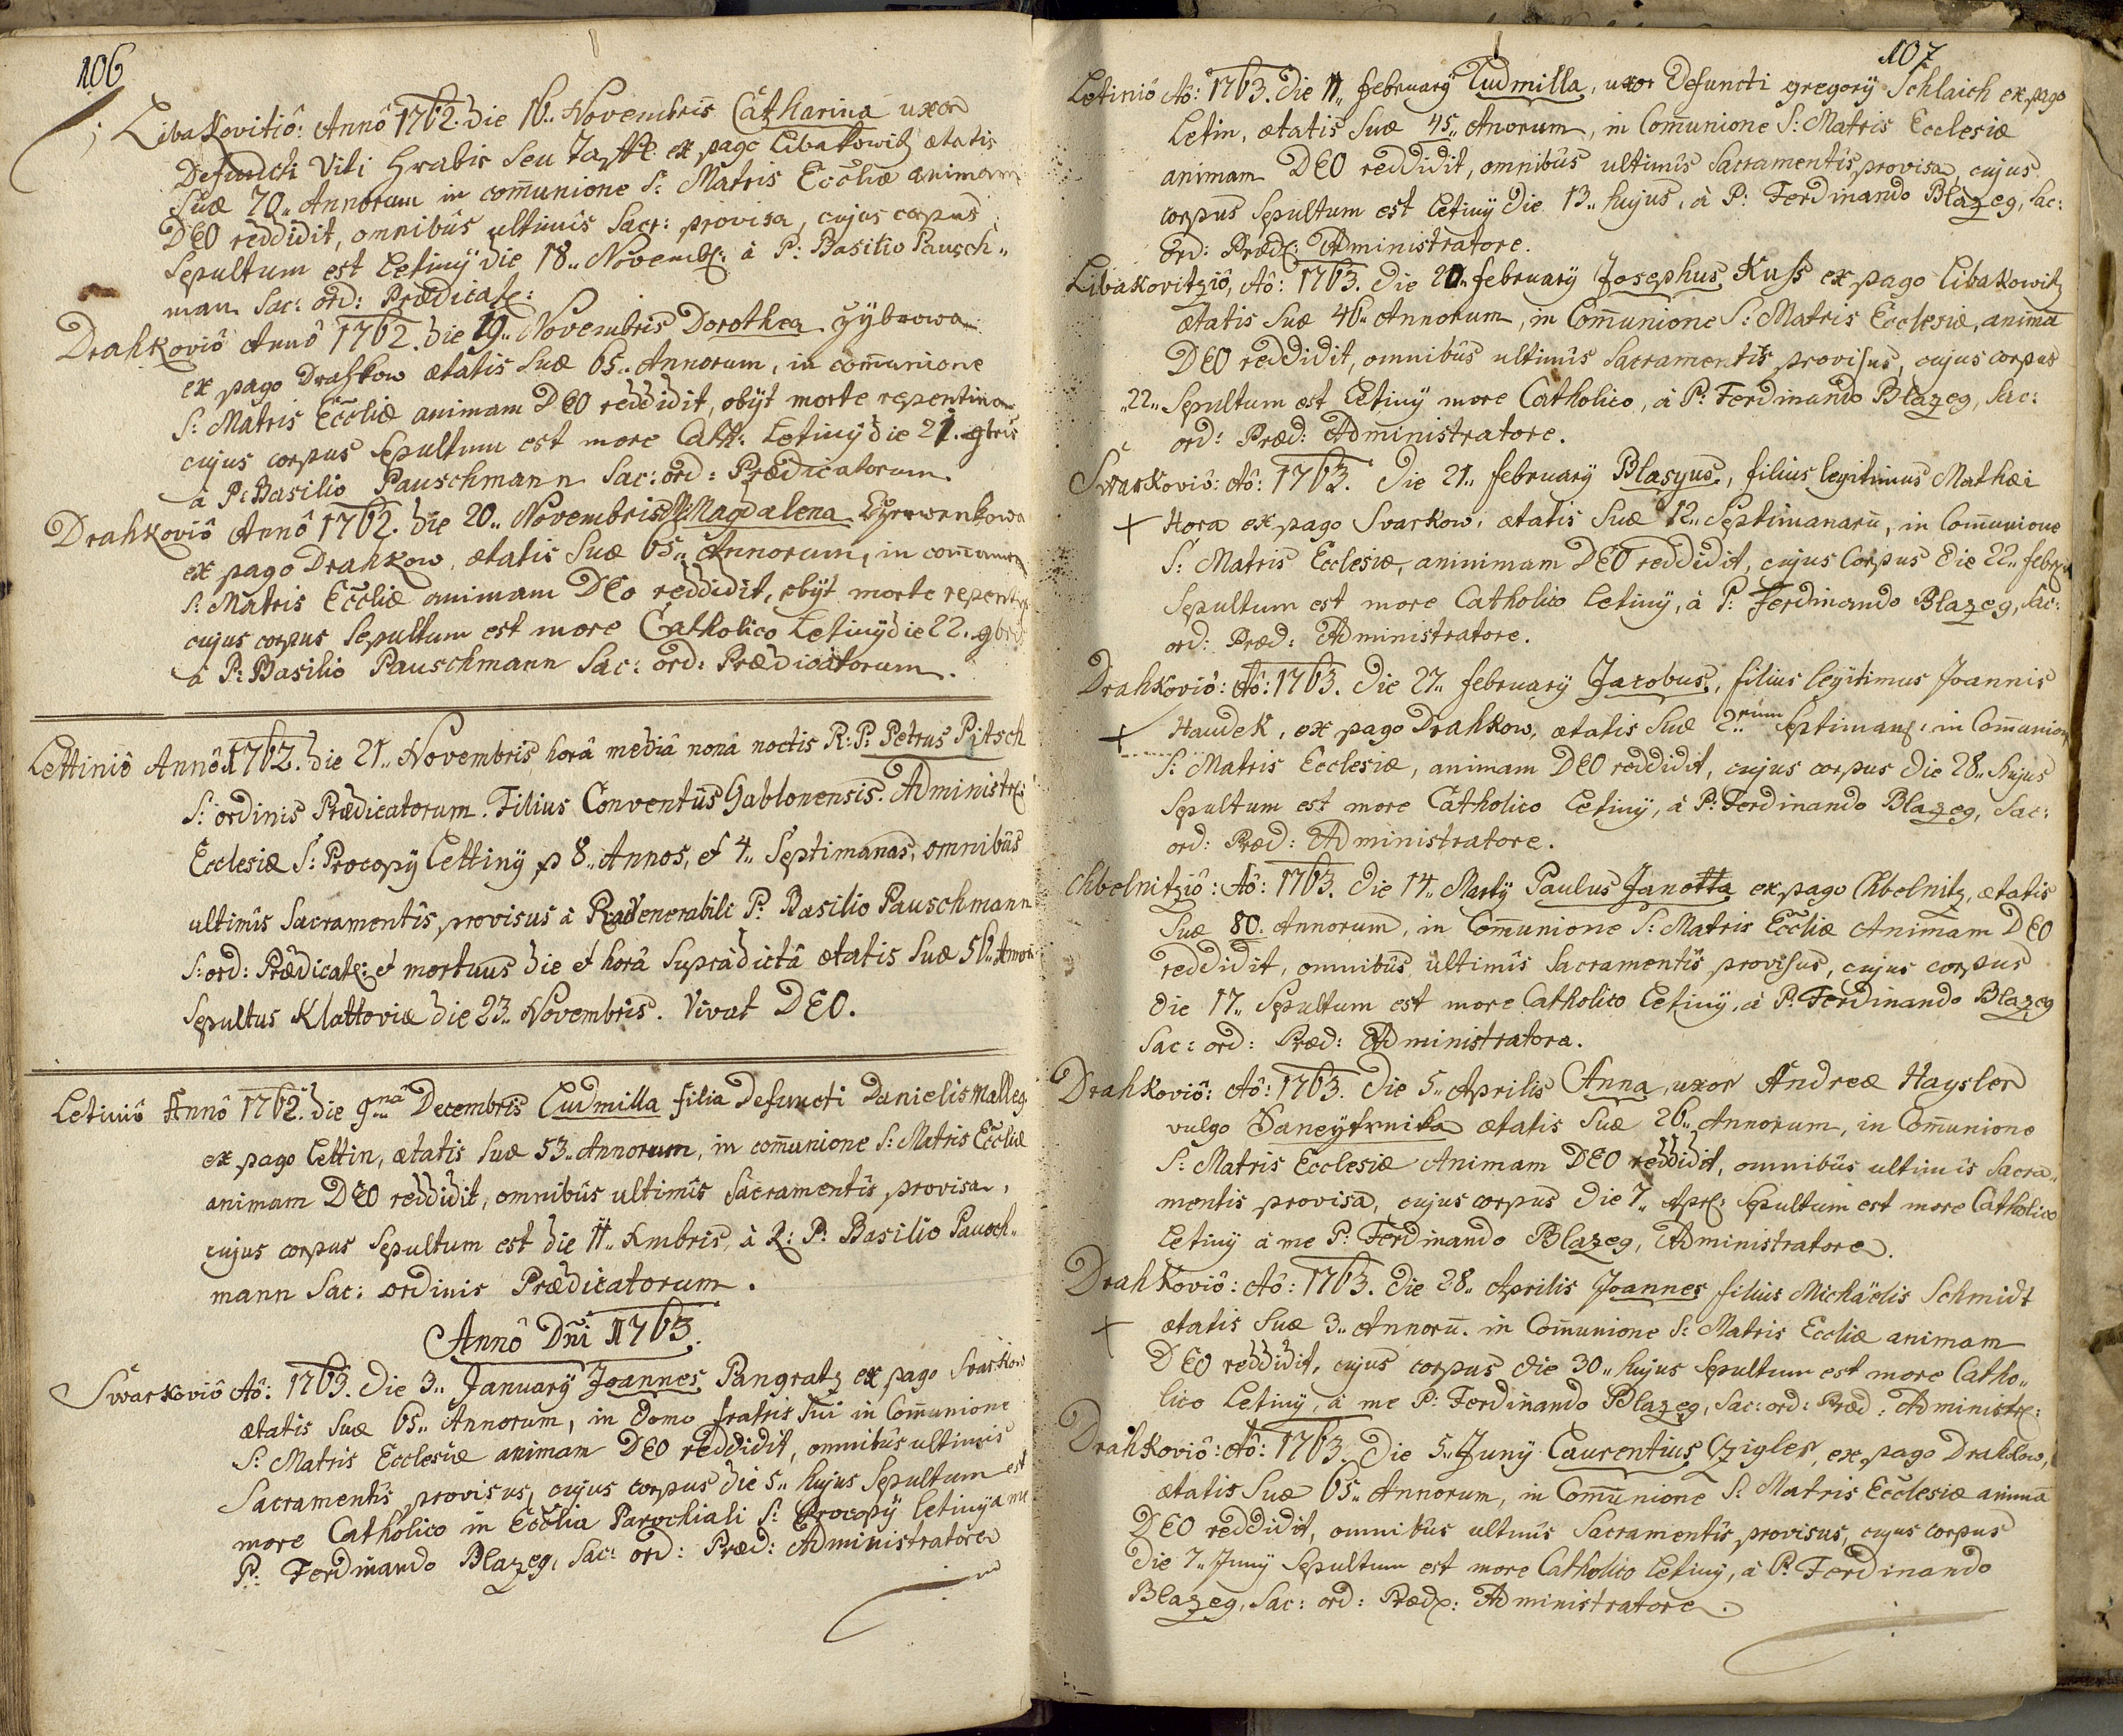 106
Libakovitiô: Annô 1762. Die 16.. Novembris Catharina uxor
Defuncti Viti Hrabis seu ex pago Libakowitz ætatis
suæ 70.. Annorum in com̄unione S: Matris Eccliæ animam
DEO reddidit, omnibûs ultimîs Sacr: provisa, cujus corpus
Sepultum est Letinÿ die 18.. Novemb: à P: Basilio Pausch..
man Sac: ord: Prædicat:
Drahkoviô Annô 1762. Die 19.. Novembris Dorothea
ex pago Drahkow ætatis suæ 65.. Annorum, in com̄unione
S: Matris Eccliæ animam DEO reddidit, obÿt morte repentina
cujus corpus Sepultum est more Cath: Letinÿ die 21. 9bris
à P: Basilio Pauschmann Sac: ord: Prædicatorum.
Drahkoviô Annô 1762. Die 20.. Novembris Magdalena
ex pago Drahkow, ætatis suæ 65.. Annorum, in
S: Matris Eccliæ animam DEO reddidit, obÿt morte
cujus corpus Sepultum est more Catholico Letinÿ die 22. 9bris
à P: Basilio Pauschmann Sac: ord: Prædicatorum.
Lettiniô Annô 1762. Die 21.. Novembris, horâ mediâ nonâ noctis R: P: Petrus Pitsch
S: ordinis Prædicatorum. Filius Conventûs Gablonensis. Administr:
Ecclesiæ S: Procopÿ Lettinÿ p 8.. Annos, et 4.. Septimanas, omnibûs
ultimîs Sacramentîs provisus à P: Basilio Pauschmann
S: ord: Prædicat: et mortuus die et horâ supradictâ ætatis suæ 56..
Sepultus Klattoviæ die 23.. Novembris. Vivat DEO.
Letiniô Annô 1762. Die 9.. nâ Decembris Ludmilla filia Defuncti Danielis Malleg
ex pago Lettin, ætatis suæ 53.. Annorum, in com̄unione S: Matris Eccliæ
animam DEO reddidit, omnibûs ultimîs Sacramentîs provisa,
cujus corpus Sepultum est die 11.. Xmbris, à R: P: Basilio Pausch..
mann Sac: ordinis Prædicatorum.
Annô Dñi 1763.
Swarkoviô Aô: 1763. Die 3.. Januarÿ Joannes Pangratz ex pago Svarkow
ætatis suæ 65.. Annorum, in domo fratris sui in Com̄unione
S: Matris Ecclesiæ animam DEO reddidit, omnibûs ultimis
Sacramentîs provisus, cujus corpus die 5.. hujus Sepultum est
more Catholico in Ecclia Parochiali S: Procopÿ Letinÿ a me
P: Ferdinando Blazeg, Sac: ord: Præd: Administratore
107
Letiniô Aô: 1763. Die 11.. februarÿ Ludmilla, uxor Defuncti gregorÿ Schlaich ex pago
Letin, ætatis suæ 45.. Anorum, in Com̄unione S: Matris Ecclesiæ
animam DEO reddidit, omnibûs ultimîs Sacramentîs provisa, cujus
corpus Sepultum est Letinÿ die 13.. hujus, à P: Ferdinando Blazeg, Sac:
ord: Præd: Administratore.
Libakovitziô, Aô: 1763. Die 20.. februarÿ Josephus Kuss ex pago Libakowitz
ætatis suæ 46.. Annorum, in Com̄unione S: Matris Ecclesiæ, animā
DEO reddidit, omnibûs ultimîs Sacramentîs provisus, cujus corpus
..22.. Sepultum est Letinÿ more Catholico, à P: Ferdinando Blazeg, Sac:
ord: Præd: Administratore.
Swarkoviô: Aô: 1763. Die 21.. februarÿ Blasyus, filius legitimus Mathæi
+ Hora ex pago Svarkow, ætatis suæ 12.. Septimanarū, in Com̄unione
S: Matris Ecclesiæ, aninimam DEO reddidit, cujus Corpus die 22..
Sepultum est more Catholico Letinÿ, à P: Ferdinando Blazeg, Sac:
ord: Præd: Administratore.
Drahkoviô: Aô: 1763. Die 27.. februarÿ Jacobus, filius legitimus Joannis
+ Haudek, ex pago Drahkow, ætatis suæ 2..rum Septiman: in Com̄unione
S: Matris Ecclesiæ, animam DEO reddidit, cujus corpus die 28.. hujus
Sepultum est more Catholico Letinÿ, à P: Ferdinando Blazeg, Sac:
ord: Præd: Administratore.
Chbelnitziô: Aô: 1763. Die 14.. Martÿ Paulus Janotta ex pago Chbelnitz, ætatis
suæ 80. Annorum, in Com̄unione S: Matris Eccliæ Animam DEO
reddidit, omnibûs ultimîs Sacramentîs provisus, cujus corpus
die 17.. Sepultum est more Catholico Letinÿ, à P: Ferdinando Blazeg
Sac: ord: Præd: Administratore.
Drahkoviô: Aô: 1763. Die 5.. Aprilis Anna, uxor Andreæ Haysler
vulgo ætatis suæ 26.. Annorum, in Com̄unione
S: Matris Ecclesiæ Animam DEO reddidit, omnibûs ultimîs Sacra..
mentis provisa, cujus corpus die 7.. Apr: Sepultum est more Catholico
Letinÿ à me P: Ferdinando Blazeg, Administratore.
Drahkoviô: Aô: 1763. Die 28.. Aprilis Joannes filius Michäelis Schmidt
+ ætatis suæ 3.. Annorū. in Com̄unione S: Matris Eccliæ animam
DEO reddidit, cujus corpus die 30.. hujus Sepultum est more Catho..
lico Letinÿ, à me P: Ferdinando Blazeg, Sac: ord: Præd: Administr:
Drahkoviô: Aô: 1763. Die 5.. Junÿ Laurentius Czigler, ex pago Drahkow,
ætatis suæ 65.. Annorum, in Com̄unione S: Matris Ecclesiæ animā
DEO reddidit, omnibûs ultimîs Sacramentîs provisus, cujus corpus
die 7.. Junÿ Sepultum est more Catholico Letinÿ, à P: Ferdinando
Blazeg, Sac: ord: Præd: Administratore.